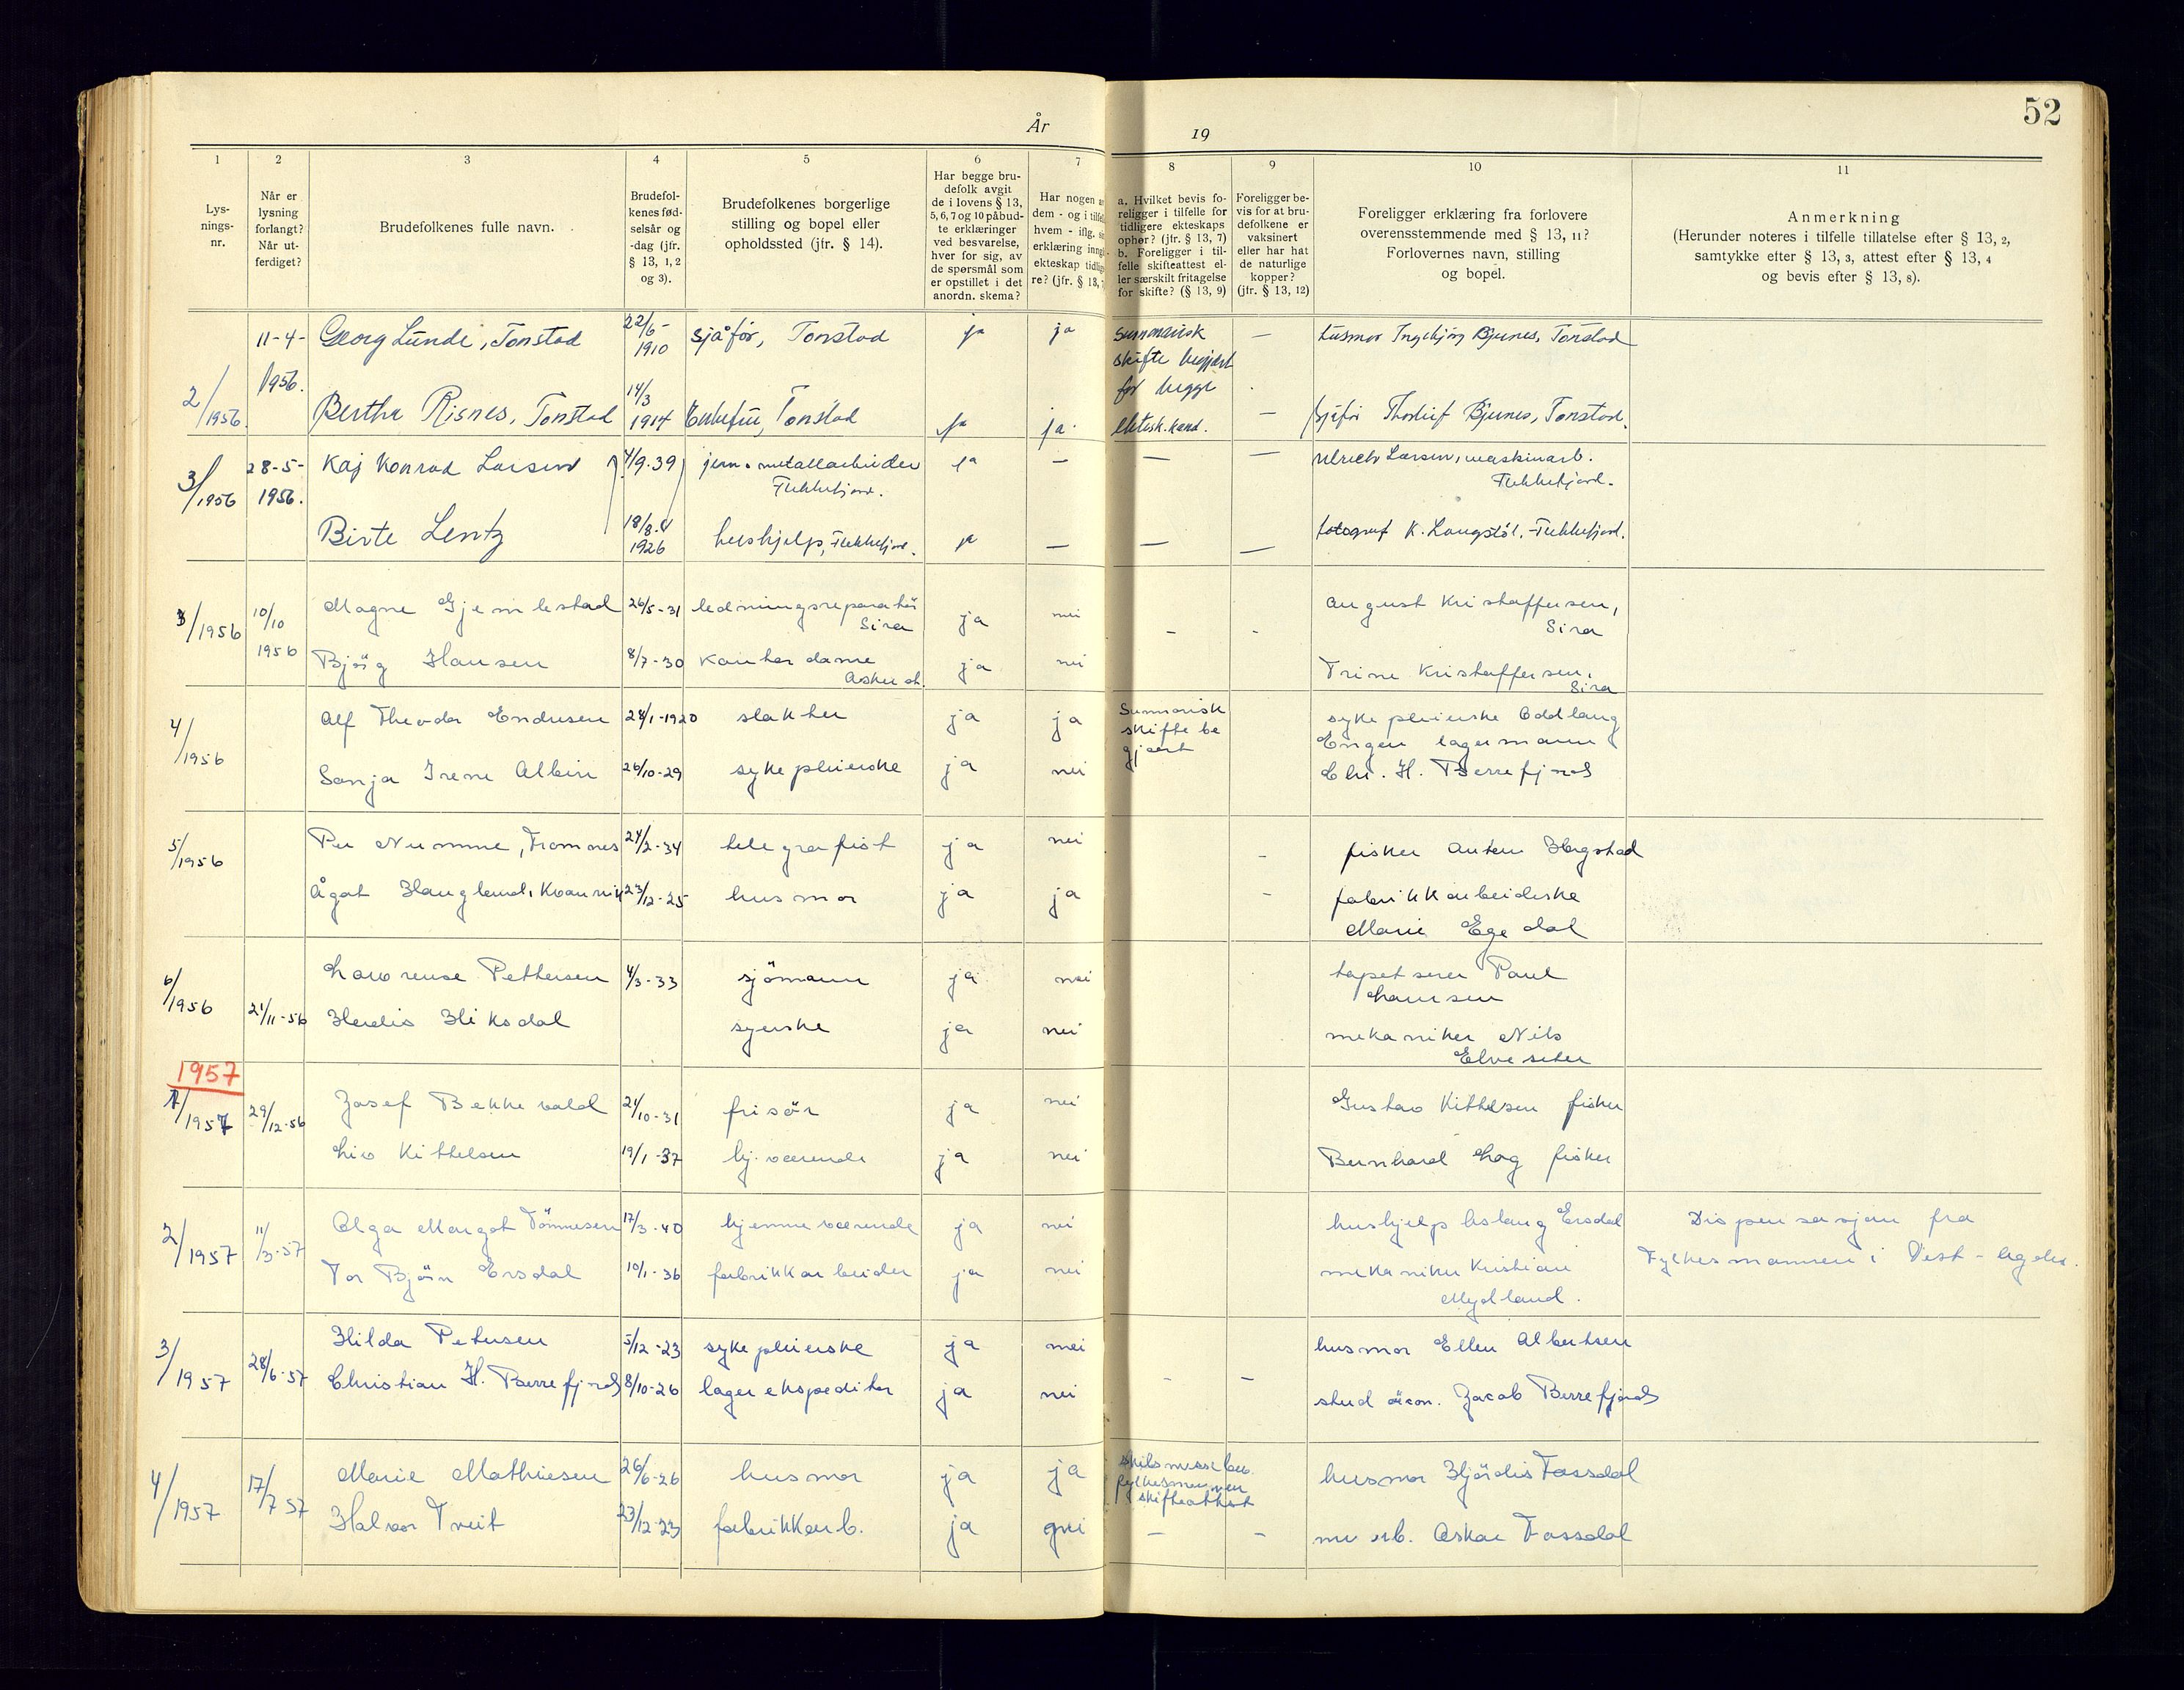 52
År
19
1
2
3
4
5
6
7
8
9
10
11
Lys-
nings-
nr.
Når er
lysning
forlangt?
Når ut-
ferdiget?
Brudefolkenes fulle navn.
Brudefol-
kenes fød-
selsår og
-dag (jfr.
§ 13, 1, 2
og 3).
Brudefolkenes borgerlige
stilling og bopel eller
opholdssted (jfr. § 14).
Har begge bru-
defolk avgit
de i lovens § 13,
5, 6, 7 og 10 påbud-
te erklæringer
ved besvarelse,
hver for sig, av
de spørsmål som
er opstillet i det
anordn. skema?
Har nogen a
dem - og i tilfel
hvem - iflg. si
erklæring inngå
ekteskap tidlige
re? (jfr. § 13, 7
a. Hvilket bevis fo-
religger i tilfelle for
tidligere ekteskaps
ophør? (jfr. § 13, 7)
b. Foreligger i til-
felle skifteattest el-
ler særskilt fritagelse
for skifte? (§ 13, 9)
Foreligger be-
vis for at bru-
defolkene er
vaksinert
eller har hat
de naturlige
kopper?
(jfr. § 13, 12)
Foreligger erklæring fra forlovere
overensstemmende med § 13, 11?
Forlovernes navn, stilling
og bopel.
Anmerkning
(Herunder noteres i tilfelle tillatelse efter § 13, 2,
samtykke efter § 13, 3, attest efter § 13, 4
og bevis efter § 13, 8).
2/1956 11-4-1956. Georg Lunde, Tonstad 22/6-1910 sjåfør, Tonstad ja ja Summarisk skifte begjært —  husmor Ingebjørg Bjunes, Tonstad
Bertha Risnes, Tonstad 14/3 1914 Enkefru, Tonstad ja ja. for begge ektesk.kand. — sjåfør Thorleif Bjunes, Tonstad.
3/1956 28-5-1956. Kaj Konrad Larsen 4/9-39 jern & metallarbeider Flekkefjord. ja — — — Ulrich Larsen, maskinarb. Flekkefjord.
Birte Lentz 18/8. 1926 hushjelp, Flekkefjord. ja — — — fotograf K. Laugstøl, Flekkefjord.
3/1956 10/10 1956 Magne Gjemlestad 26/5-31 ledningsreparatør Sira ja nei - - August Kristoffersen, Sira
Bjørg Hansen 8/7-30 Kontordame ja nei Trine Kristoffersen, Sira
4/1956 Alf Theodor Endresen 28/1-1920 slakter ja ja Summarisk skifte begjært sykepleierske Oddlaug Engen lagermann
Sonja Irene Albin 26/10-29 sykepleierske ja nei Chr. H. Berrefjord
5/1956 Per Numme, Tromnes 24/2-34 telegrafist ja nei - fisker Anton Hogstad
Ågot Haugland, Kvannvik 23/12-25 husmor ja ja - fabrikkarbeiderske
Marie Egedal
6/1956 21/11-56 Lawrense Pettersen 4/3-33 sjömann ja nei tapetserer Paul
Hansen
Herdis Hiksdal syerske ja nei mekaniker Nils
Elveseter
1957
1/1957 29/12-56 Josef Bekkevold 21/10-31 frisör ja nei Gustav Kittelsen fisker
Liv Kittelsen 19/1-37 hj. værende ja nei Bernhard Log fisker
2/1957 11/3-57 Olga Margot Tönnesen 17/3-40 hjemmeværende ja nei hushjelp Aslaug Ersdal Dispensasjon fra
Tor Bjørn Ersdal 10/1-36 fabrikkarbeider ja nei mekaniker Kristian Fylkesmannen i Vest-Agder.
Mydland.
3/1957 28/6-57 Hilda Petersen 5/12-23 sykepleierske ja nei husmor Ellen Albertsen
Christian H. Berrefjord 8/10-26 lagerekspeditör ja nei - - stud öcon. Jacob Berrefjord
4/1957 17/7 57 Marie Mathiesen 26/6-26 husmor ja ja skilsmisse bev. fylkesmannen skifteattest husmor Hjørdis Fossdal
Halvor Tveit 23/12-23 fabrikkarb. ja nei — - arb. Oskar Fossdal